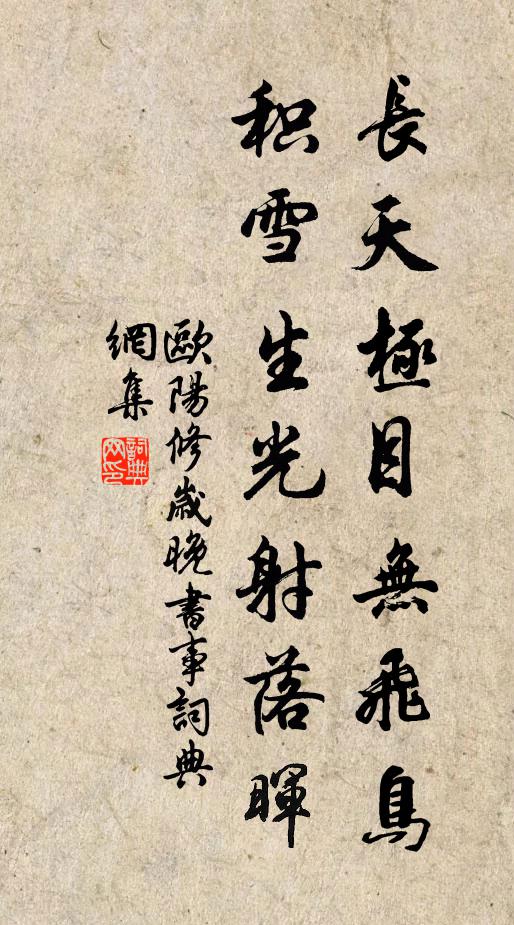 長天極目無飛鳥
积雪生光射落暉
歐陽修歲晚書事詞典
網集
詞典網印